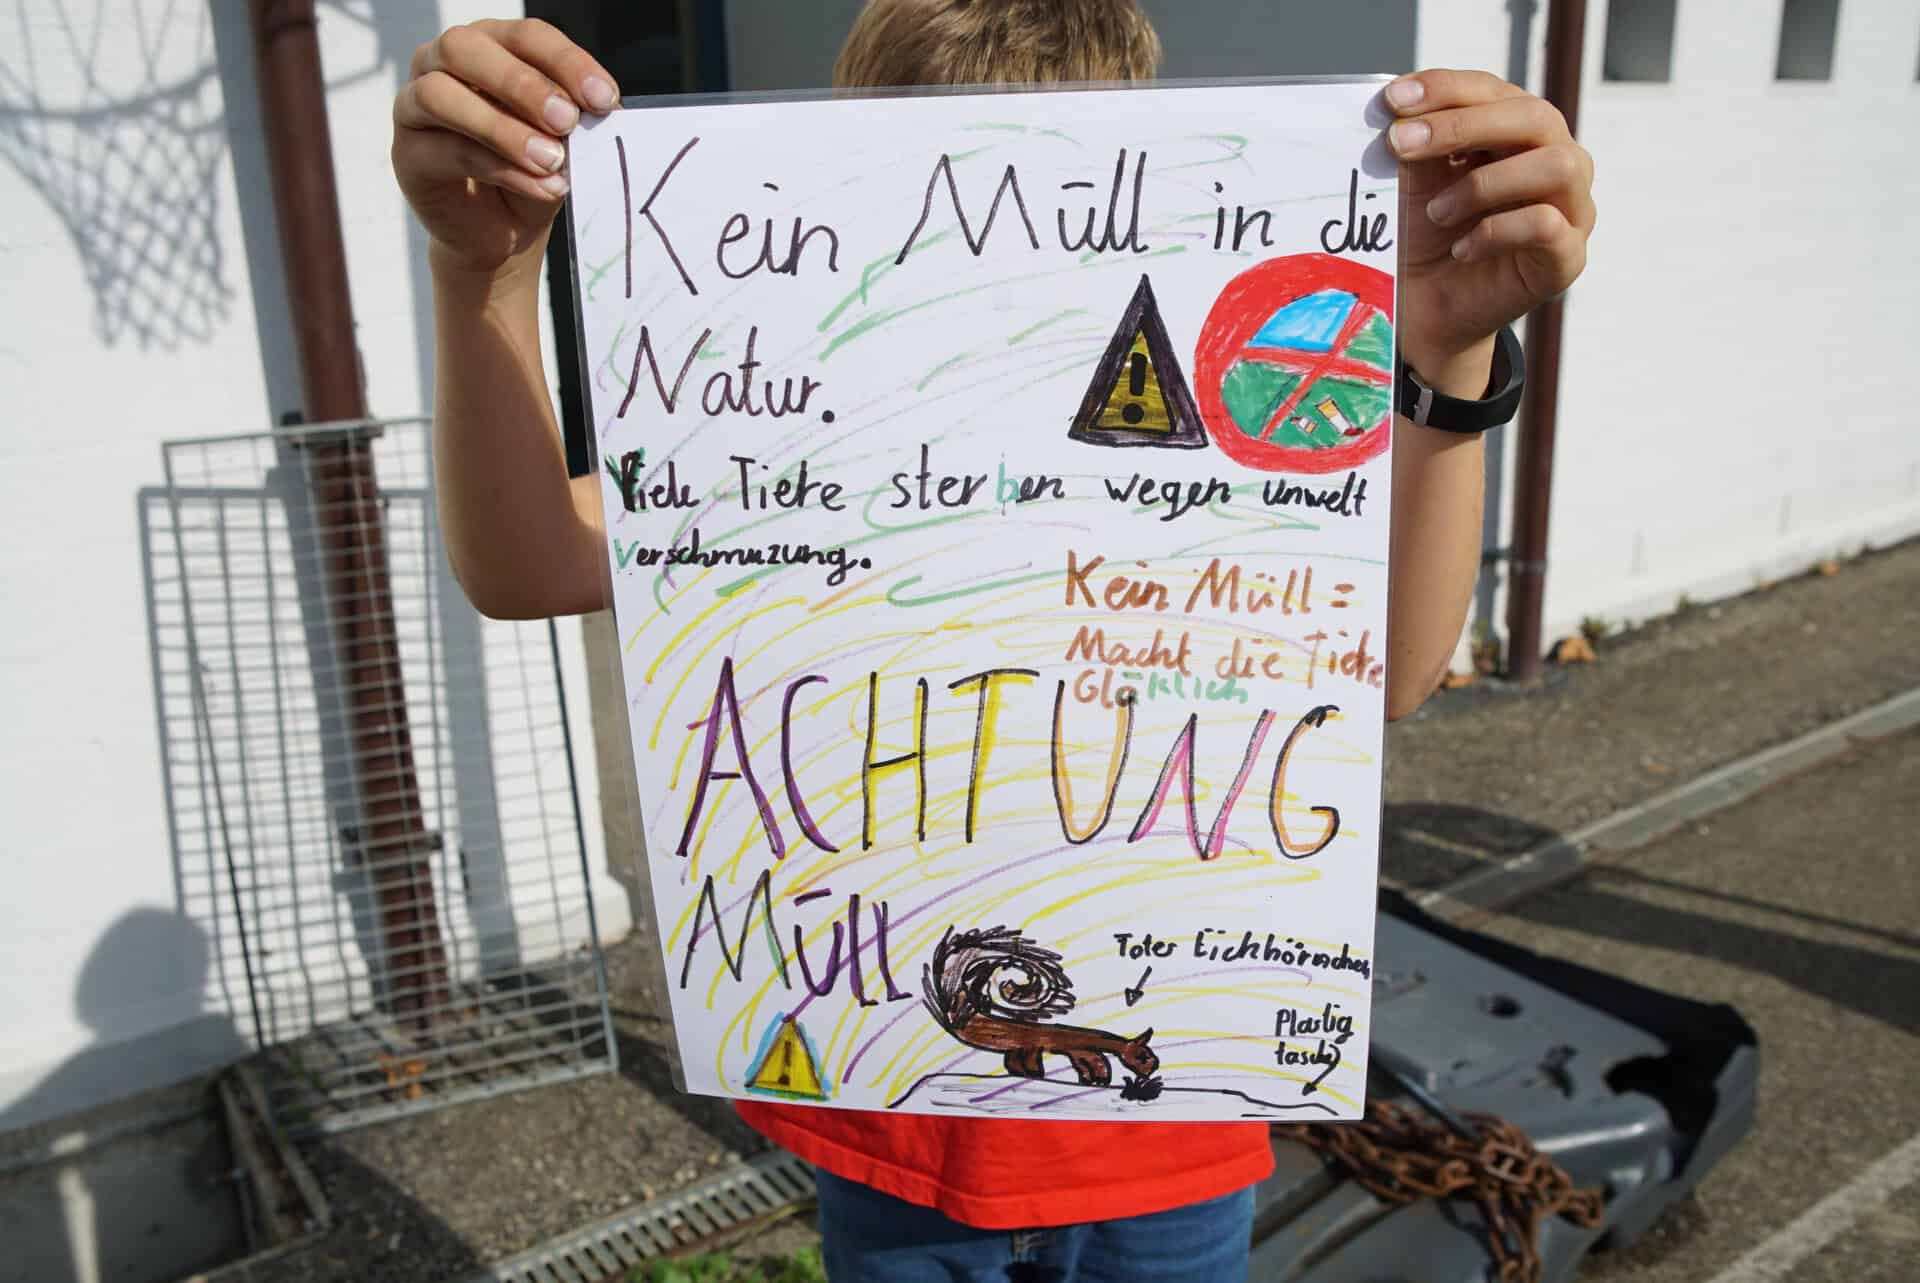 Kein Müll in die
Natur.
Viele Tiere sterben wegen unwelt
verschmuzung.
Kein Müll =
Macht die Tiere
Glüklich
ACHTUNG
Müll
Toter Eichhörnchen
Plastig
tasche